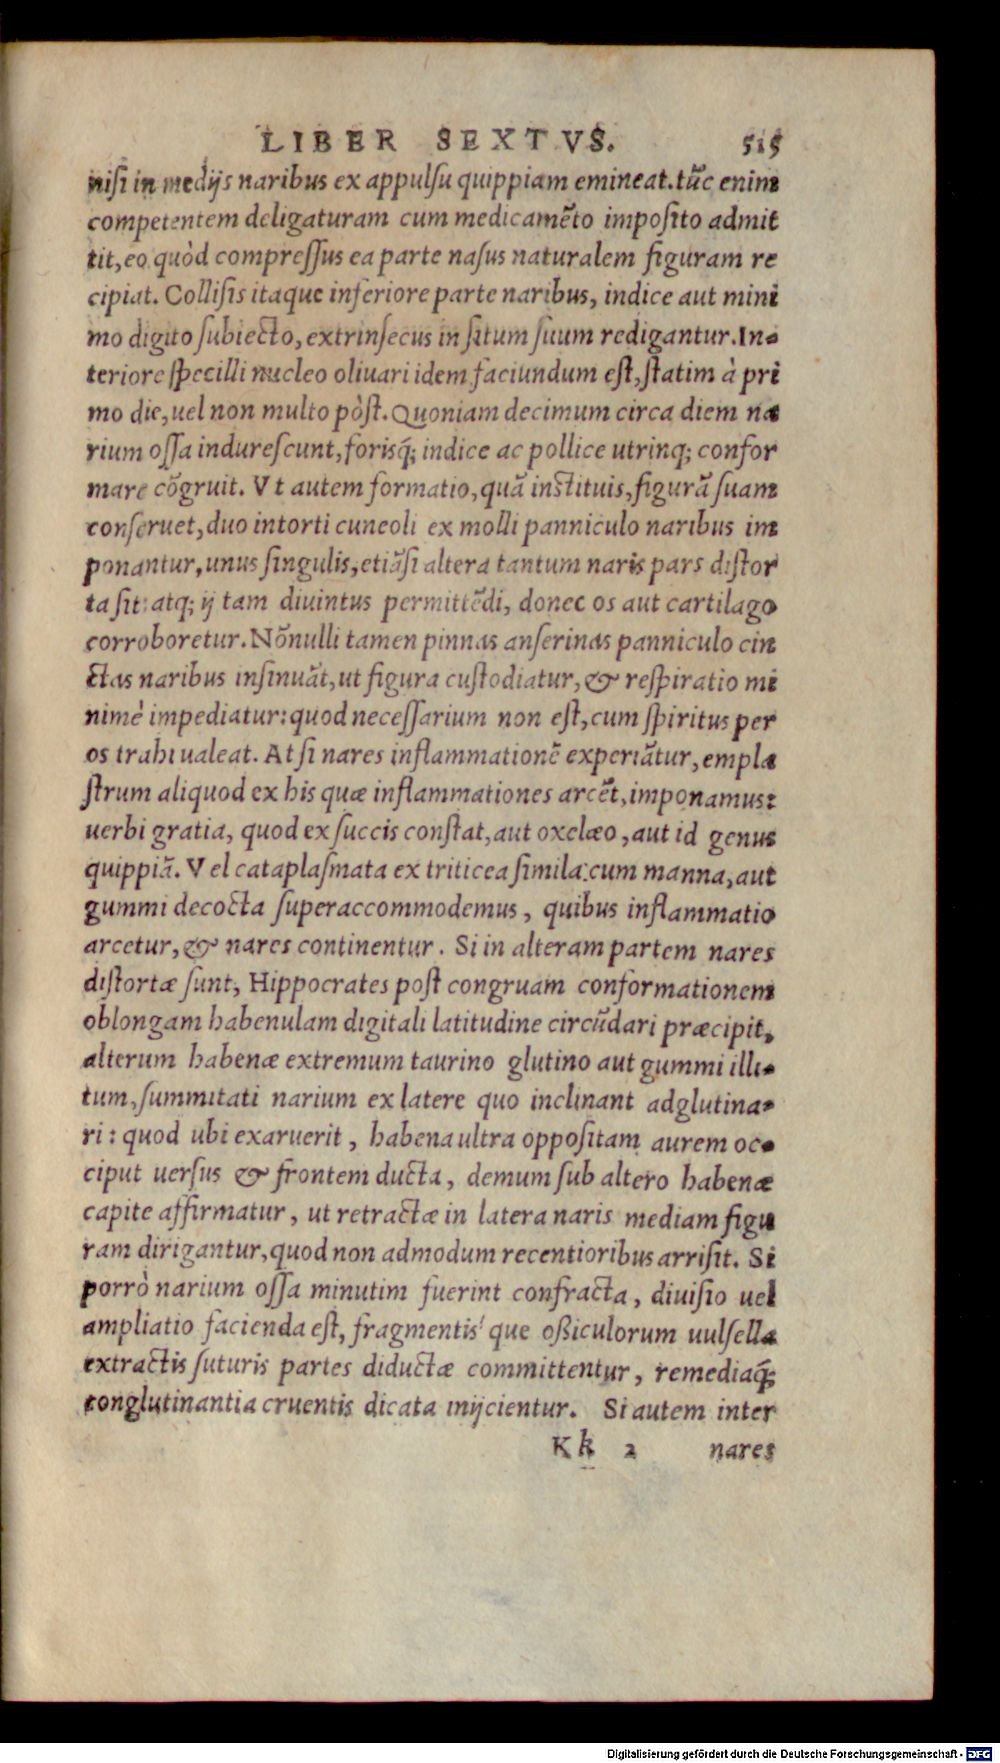 LIBER SEXTVS. 515
niſi in medijs naribus ex appulſu quippiam emineat. tũc enim
competentem deligaturam cum medicamẽto impoſito admit
tit, eo quòd compreſſus ea parte naſus naturalem figuram re
cipiat. Colliſis itaque inferiore parte naribus, indice aut mini
mo digito ſubiecto, extrinſecus in ſitum ſuum redigantur. In-
teriore ſpecilli nucleo oliuari idem faciundum eſt, ſtatim à pri
mo die, uel non multo pòſt. Quoniam decimum circa diem na
rium oſſa indureſcunt, forisq́; indice ac pollice utrinq; confor
mare cõgruit. Vt autem formatio, quã inſtituis, figurã ſuam
conſeruet, duo intorti cuneoli ex molli panniculo naribus im
ponantur, unus ſingulis, etiãſi altera tantum naris pars diſtor
ta ſit: atq; ij tam diuintus permittẽdi, donec os aut cartilago
corroboretur. Nõnulli tamen pinnas anſerinas panniculo cin
ctas naribus inſinuãt, ut figura cuſtodiatur, & reſpiratio mi
nimè impediatur: quod neceſſarium non eſt, cum ſpiritus per
os trahi ualeat. At ſi nares inflammationẽ experiãtur, empla
ſtrum aliquod ex his quæ inflammationes arcẽt, imponamus:
uerbi gratia, quod ex ſuccis conſtat, aut oxelæo, aut id genus
quippiã. Vel cataplaſmata ex triticea ſimila: cum manna, aut
gummi decocta ſuperaccommodemus, quibus inflammatio
arcetur, & nares continentur. Si in alteram partem nares
diſtortæ ſunt, Hippocrates poſt congruam conformationem
oblongam habenulam digitali latitudine circũdari præcipit,
alterum habenæ extremum taurino glutino aut gummi illi-
tum, ſummitati narium ex latere quo inclinant adglutina-
ri: quod ubi exaruerit, habena ultra oppoſitam aurem oc-
ciput uerſus & frontem ducta, demum ſub altero habenæ
capite affirmatur, ut retractæ in latera naris mediam figu
ram dirigantur, quod non admodum recentioribus arriſit. Si
porrò narium oſſa minutim fuerint confracta, diuiſio uel
ampliatio facienda eſt, fragmentis' que oßiculorum uulſella
extractis ſuturis partes diductæ committentur, remediaq́;
conglutinantia cruentis dicata inijcientur. Si autem inter
Kk 2 nares
Digitalisierung gefördert durch die Deutsche Forschungsgemeinschaft - DFG